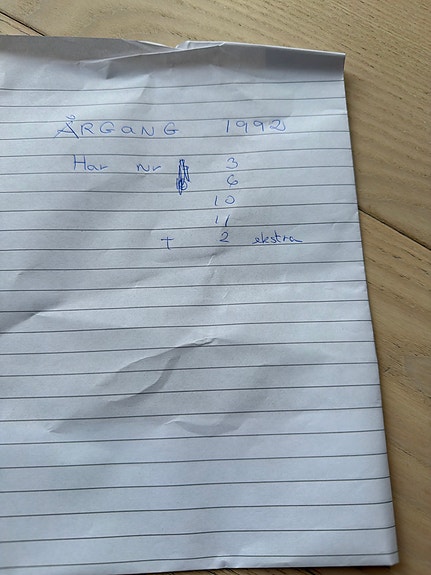 ÅRGANG 1992
Har Nr 3
6
10
11
+ 2 ekstra